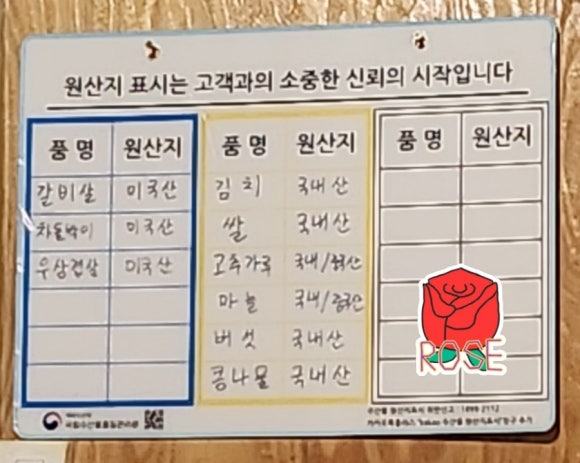 원산지 표시는 고객과의 소중한 신뢰의 시작입니다
품명 원산지 품명 원산지 품명 원산지
갈비살 미국산 김치 국내산
차돌박이 미국산 쌀 국내산
우삼겹살 미국산 고추가루 국내/중국산
마늘 국내/중국산
버섯 국내산
콩나물 국내산
ROSE
국립수산물품질관리원
수산물 원산지표시 위반신고 : 1899-2112